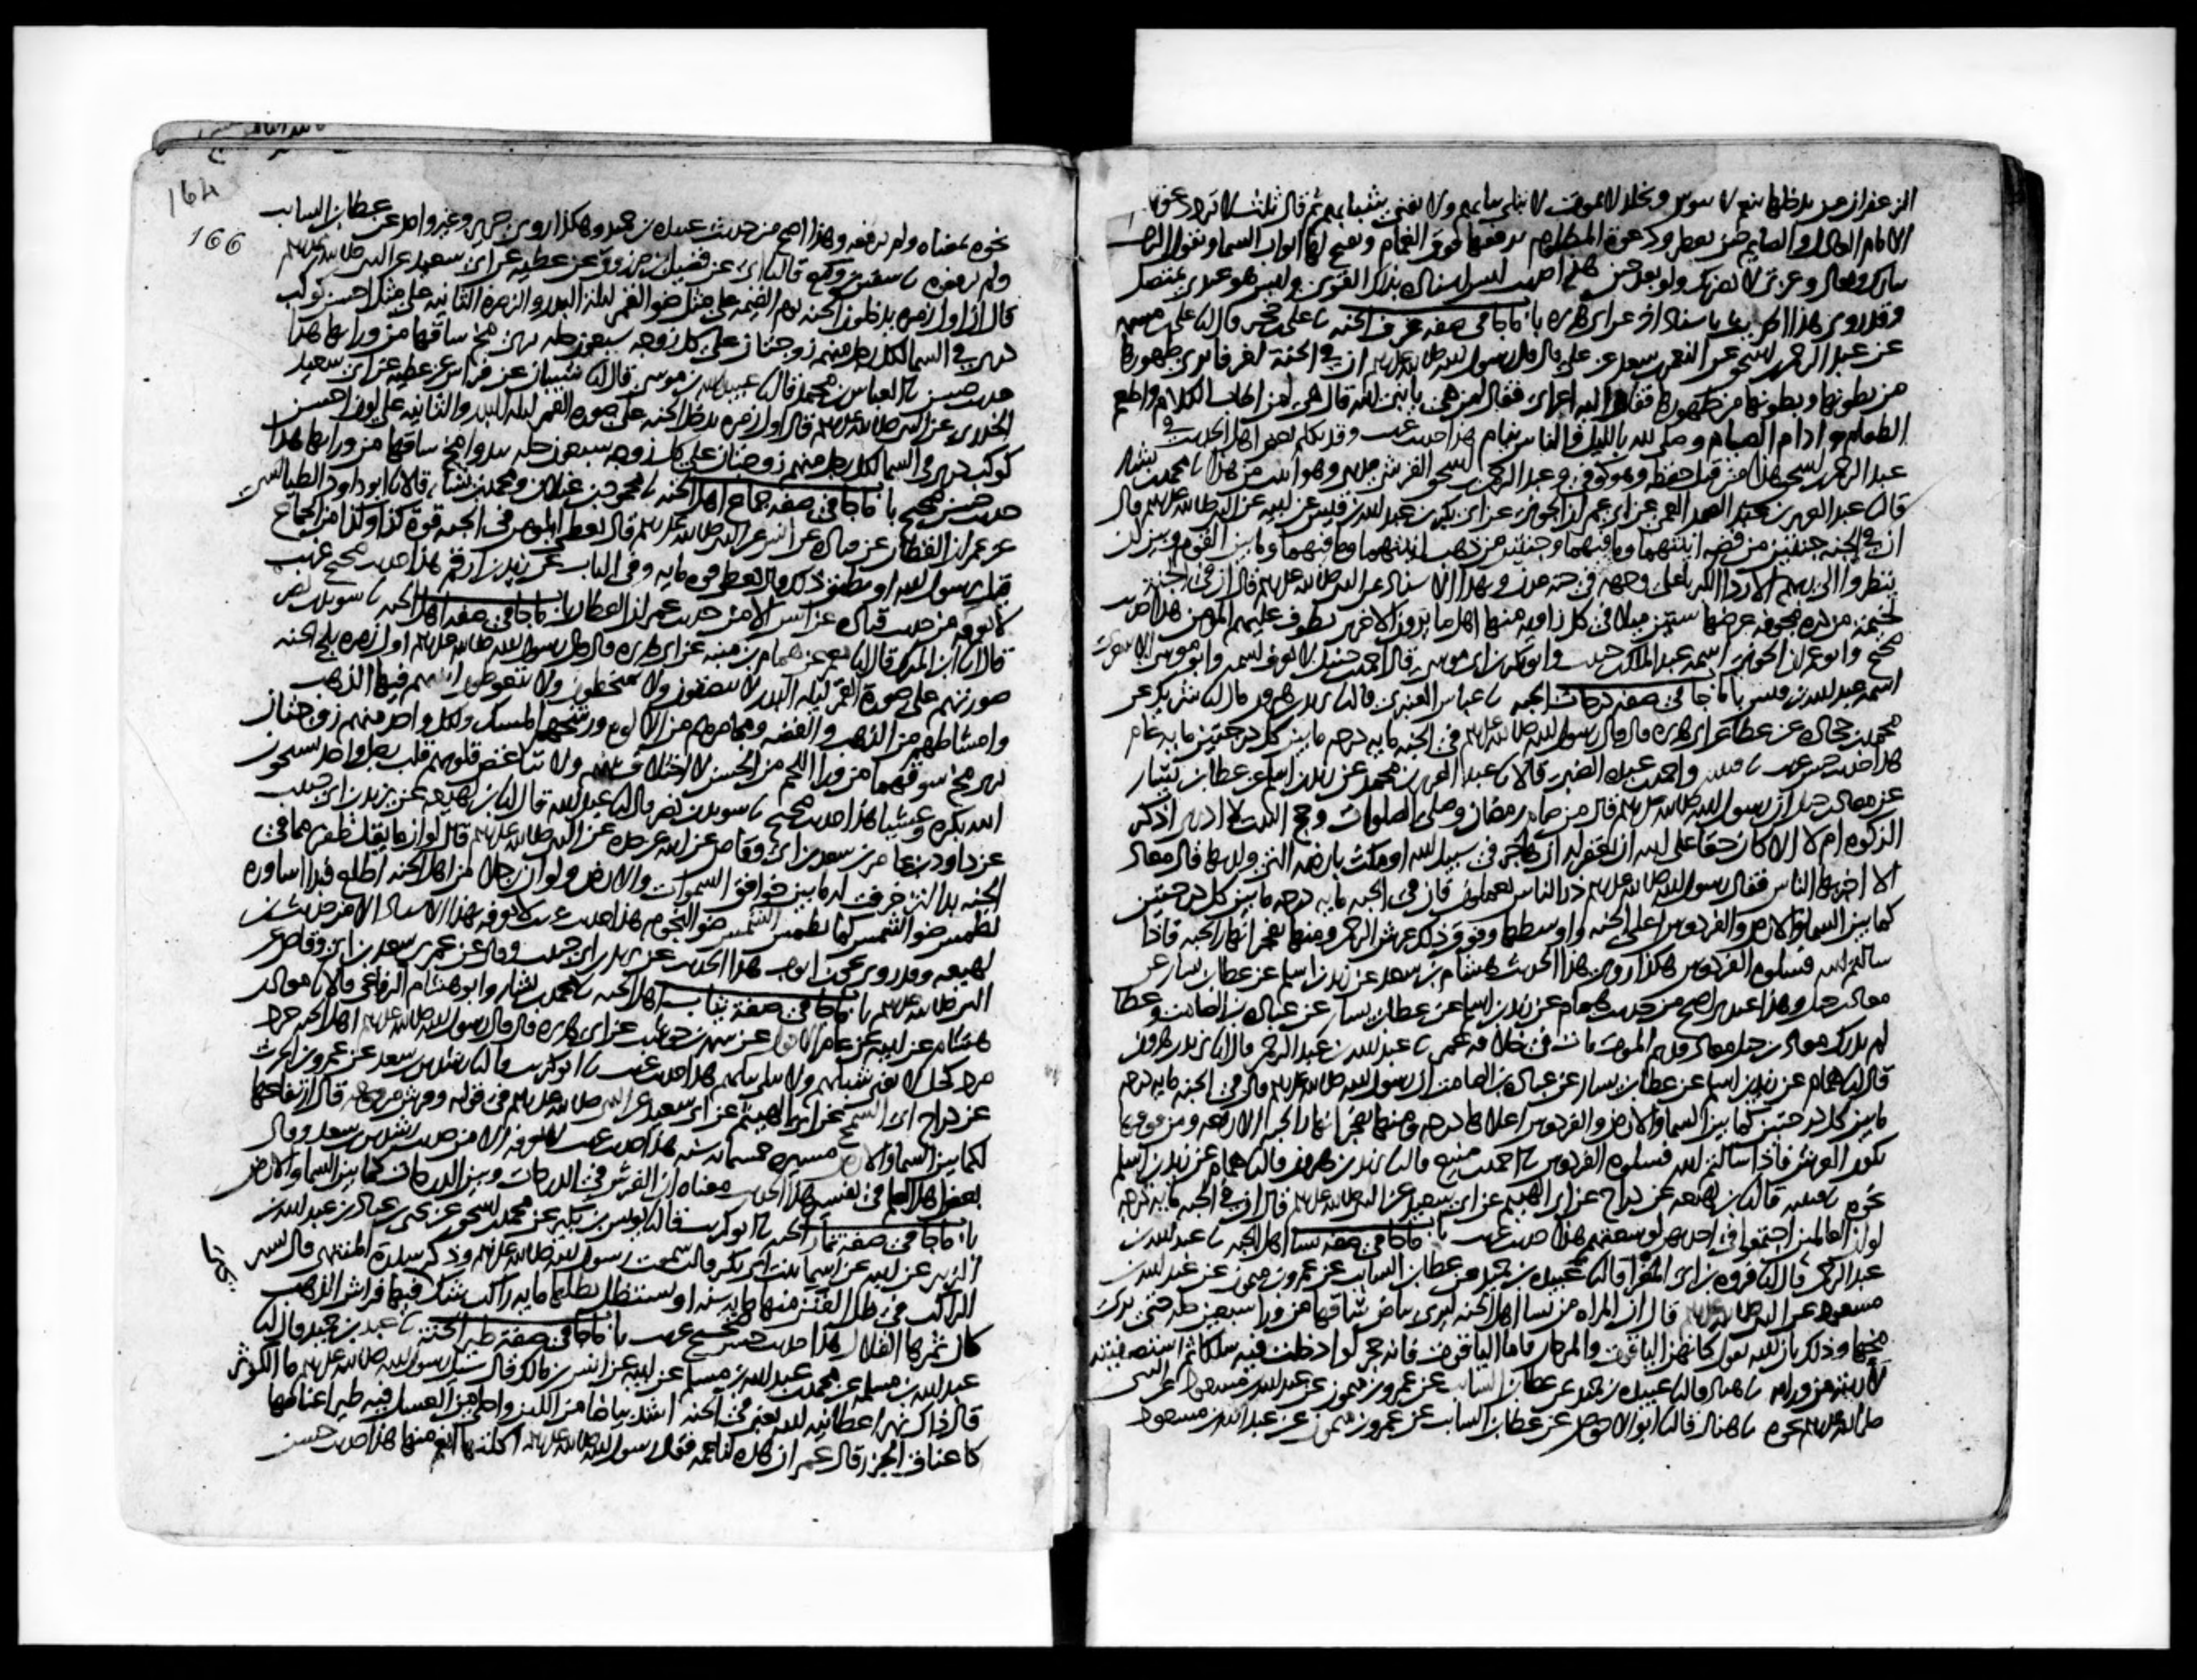 الزعفران من يدخلها ينعم لا يبوس ويخلد لا يموت لا تبلى ثيابهم ولا يفنى شبابهم ثم قال ثلث لا ترد دعوتهم
الامام العادل والصايم حين يفطر ودعوة المظلوم يرفعها فوق الغمام وتفتح لها ابواب السما ويقول الرب
تبارك وتعالى وعزتي لا نصرنك ولو بعد حين هذا حديث ليس اسناده بذاك القوي وليس هو عندي بمتصل
وقد روي هذا الحديث باسناد اخر عن ابي هريره باب ما جا في صفه غرف الجنه نا علي بن حجر قال نا علي بن مسهر
عن عبد الرحمن بن اسحق عن النعمن بن سعد عن علي قال قال رسول الله صلى الله عليه وسلم ان في الجنة لغرفا يرى ظهورها
من بطونها وبطونها من ظهورها فقام اليه اعرابي فقال لمن هي يا نبي الله قال هي لمن اطاب الكلام واطعم
الطعام وادام الصيام وصلى لله بالليل والناس نيام هذا حديث غريب وقد تكلم بعض اهل الحديث في
عبد الرحمن بن اسحق هذا من قبل حفظه وهو كوفي وعبد الرحمن بن اسحق القرشي مديني وهو اثبت من هذا نا محمد بن بشار
قال نا عبد العزيز بن عبد الصمد العمي عن ابي عمران الجوني عن ابي بكر بن عبد الله بن قيس عن ابيه عن النبي صلى الله عليه وسلم قال
ان في الجنه جنتين من فضه انيتهما وما فيهما وجنتين من ذهب انيتهما وما فيهما وما بين القوم وبين ان
ينظروا الى ربهم الا ردا الكبريا على وجهه في جنة عدن وبهذا الاسناد عن النبي صلى الله عليه وسلم قال ان في الجنة
لخيمة من دره مجوفه عرضها ستين ميلا في كل زاويه منها اهل ما يرون الاخرين يطوف عليهم المومن هذا حديث
صحيح وابو عمران الجوني اسمه عبد الملك بن حبيب وابو بكر بن ابي موسى قال احمد بن حنبل لا يعرف اسمه وابو موسى الاشعري
اسمه عبد الله بن قيس باب ما جا في صفه درجات الجنه نا عباس العنبري قال نا يزيد بن هرون قال نا شريك عن
محمد بن جحاده عن عطا عن ابي هريره قال قال رسول الله صلى الله عليه وسلم في الجنه مايه درجه ما بين كل درجتين مايه عام
هذا حديث حسن غريب نا قتيبه واحمد بن عبده الضبي قالا نا عبد العزيز بن محمد عن زيد بن اسلم عن عطا بن يسار
عن معاذ بن جبل ان رسول الله صلى الله عليه وسلم قال من صام رمضان وصلى الصلوات وحج البيت لا ادري اذكر
الزكوه ام لا الا كان حقا على الله ان يغفر له ان هاجر في سبيل الله او مكث بارضه التي ولد بها قال معاذ
الا اخبر بها الناس فقال رسول الله صلى الله عليه وسلم ذر الناس يعملون فان في الجنه مايه درجه ما بين كل درجتين
كما بين السما والارض والفردوس اعلى الجنه واوسطها وفوق ذلك عرش الرحمن ومنها تفجر انهار الجنه فاذا
سالتم الله فسلوه الفردوس هكذا روي هذا الحديث هشام بن سعد عن زيد بن اسلم عن عطا بن يسار عن
معاذ بن جبل وهذا عندي اصح من حديث همام عن زيد بن اسلم عن عطا بن يسار عن عباده بن الصامت وعطا
لم يدرك معاذ بن جبل معاذ قديم الموت مات في خلافه عمر نا عبد الله بن عبد الرحمن قال نا يزيد بن هرون
قال نا همام عن زيد بن اسلم عن عطا بن يسار عن عباده بن الصامت ان رسول الله صلى الله عليه وسلم قال في الجنه مايه درجه
ما بين كل درجتين كما بين السما والارض والفردوس اعلاها درجه ومنها تفجر انهار الجنه الاربعه ومن فوقها
يكون العرش فاذا سالتم الله فسلوه الفردوس نا احمد بن منيع قال نا يزيد بن هرون قال نا همام عن زيد بن اسلم
نحوه نا قتيبه قال نا ابن لهيعه عن دراج عن ابي الهيثم عن ابي سعيد عن النبي صلى الله عليه وسلم قال ان في الجنه مايه درجه
لو ان العالمين اجتمعوا في احديهن لوسعتهم هذا حديث غريب باب ما جا في صفه نسا اهل الجنه نا عبد الله بن
عبد الرحمن قال نا فروه بن ابي المغرا قال نا عبيده بن حميد عن عطا بن السايب عن عمرو بن ميمون عن عبد الله بن
مسعود عن النبي صلى الله عليه وسلم قال ان المراه من نسا اهل الجنه ليرى بياض ساقها من ورا سبعين حله حتى يرى
مخها وذلك بان الله يقول كانهن الياقوت والمرجان فاما الياقوت فانه حجر لو ادخلت فيه سلكا ثم استصفيته
لاريته من ورايه نا هناد قال نا عبيده بن حميد عن عطا بن السايب عن عمرو بن ميمون عن عبد الله بن مسعود عن النبي
صلى الله عليه وسلم نحوه نا هناد قال نا ابو الاحوص عن عطا بن السايب عن عمرو بن ميمون عن عبد الله بن مسعود
164
166
نحوه بمعناه ولم يرفعه وهذا اصح من حديث عبيده بن حميد وهكذا روى جرير وغير واحد عن عطا بن السايب
ولم يرفعوه نا سفين بن وكيع قال نا ابي عن فضيل بن مرزوق عن عطيه عن ابي سعيد عن النبي صلى الله عليه وسلم
قال ان اول زمره يدخلون الجنه يوم القيمه على مثل ضو القمر ليلة البدر والزمره الثانيه على مثل احسن كوكب
دري في السما لكل رجل منهم زوجتان على كل زوجه سبعون حله يرى مخ ساقها من ورايها هذا
حديث حسن نا العباس بن محمد قال نا عبيد الله بن موسى قال نا شيبان عن فراس عن عطيه عن ابي سعيد
الخدري عن النبي صلى الله عليه وسلم قال اول زمره يدخل الجنه على صوره القمر ليله البدر والثانيه على لون احسن
كوكب دري في السما لكل رجل منهم زوجتان على كل زوجه سبعون حله يبدوا مخ ساقها من ورايها هذا
حديث حسن صحيح باب ما جا في صفه جماع اهل الجنه نا محمود بن غيلان ومحمد بن بشار قالا نا ابو داود الطيالسي
عن عمران القطان عن قتاده عن انس عن النبي صلى الله عليه وسلم قال يعطى المومن في الجنه قوة كذا وكذا من الجماع
قيل يرسول الله او يطيق ذلك قال يعطى قوه مايه وفي الباب عن زيد بن ارقم هذا حديث صحيح غريب
لا نعرفه من حديث قتاده عن انس الا من حديث عمران القطان باب ما جا في صفه اهل الجنه نا سويد بن نصر
قال انا ابن المبرك قال نا معمر عن همام بن منبه عن ابي هريره قال قال رسول الله صلى الله عليه وسلم اول زمره يلج الجنه
صورتهم على صورة القمر ليله البدر لا يبصقون ولا يتمخطون ولا يتغوطون انيتهم فيها الذهب
وامشاطهم من الذهب والفضه ومجامرهم من الالوه ورشحهم المسك ولكل واحد منهم زوجتان
يرى مخ سوقهما من ورا اللحم من الحسن لا اختلاف بينهم ولا تباغض قلوبهم قلب رجل واحد يسبحون
الله بكره وعشيا هذا حديث صحيح نا سويد بن نصر قال نا عبد الله قال نا ابن لهيعه عن يزيد بن ابي حبيب
عن داود بن عامر بن سعد بن ابي وقاص عن ابيه عن جده عن النبي صلى الله عليه وسلم قال لو ان ما يقل ظفر مما في
الجنه بدا لتزخرفت له ما بين خوافق السموات والارض ولو ان رجلا من اهل الجنه اطلع فبدا اساوره
لطمس ضو الشمس كما تطمس الشمس ضو النجوم هذا حديث غريب لا نعرفه بهذا الاسناد الا من حديث ابن
لهيعه وقد روى يحيى بن ايوب هذا الحديث عن يزيد بن ابي حبيب وقال عن عمر بن سعد بن ابي وقاص عن
النبي صلى الله عليه وسلم باب ما جا في صفة ثياب اهل الجنه نا محمد بن بشار وابو هشام الرفاعي قالا نا معاذ بن
هشام عن ابيه عن عامر الاحول عن شهر بن حوشب عن ابي هريره قال قال رسول الله صلى الله عليه وسلم اهل الجنه جرد
مرد كحل لا يفنى شبابهم ولا يبلى ثيابهم هذا حديث غريب نا ابو كريب قال نا رشدين بن سعد عن عمرو بن الحرث
عن دراج ابي السمح عن ابي الهيثم عن ابي سعيد عن النبي صلى الله عليه وسلم في قوله وفرش مرفوعه قال ارتفاعها
لكما بين السما والارض مسيره خمسمايه سنه هذا حديث غريب لا نعرفه الا من حديث رشدين بن سعد وقال
بعض اهل العلم في تفسير هذا الحديث معناه ان الفرش في الدرجات وبين الدرجات كما بين السما والارض
باب ما جا في صفه ثمار الجنه نا ابو كريب قال نا يونس بن بكير عن محمد بن اسحق عن يحيى بن عباد بن عبد الله بن
الزبير عن ابيه عن اسما بنت ابي بكر قالت سمعت رسول الله صلى الله عليه وسلم وذكر سدرة المنتهى قال يسير
الراكب في ظل الفنن منها مايه سنه او يستظل بظلها مايه راكب شك يحيى فيها فراش الذهب
كان ثمرها القلال هذا حديث حسن صحيح غريب باب ما جا في صفة طير الجنه نا عبد بن حميد قال نا
عبد الله بن مسلمه عن محمد بن عبد الله بن مسلم عن ابيه عن انس بن مالك قال سيل رسول الله صلى الله عليه وسلم ما الكوثر
قال ذاك نهر اعطانيه الله يعني في الجنه اشد بياضا من اللبن واحلى من العسل فيه طير اعناقها
كاعناق الجزر قال عمر ان هذه لناعمه فقال رسول الله صلى الله عليه وسلم اكلتها انعم منها هذا حديث حسن